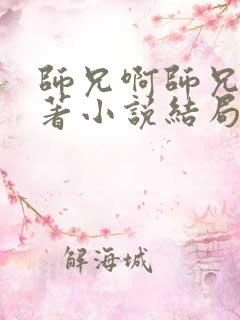 師兄啊師兄
著小說結局
解海城